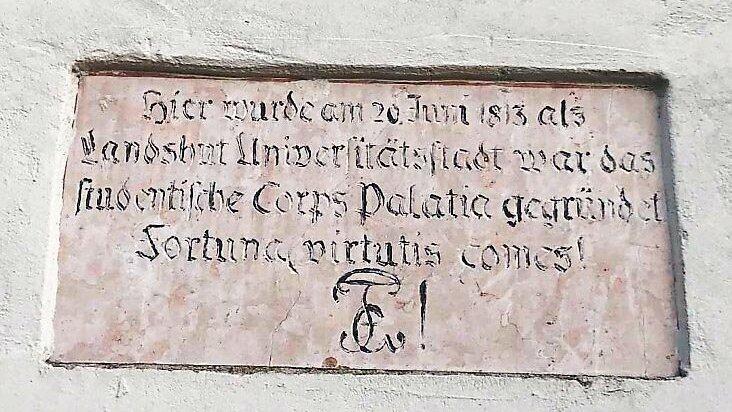 Hier wurde am 20. Juni 1813 als
Landshut Universitätsstadt war das
studentische Corps Palatia gegründet
Fortuna, virtutis comes!